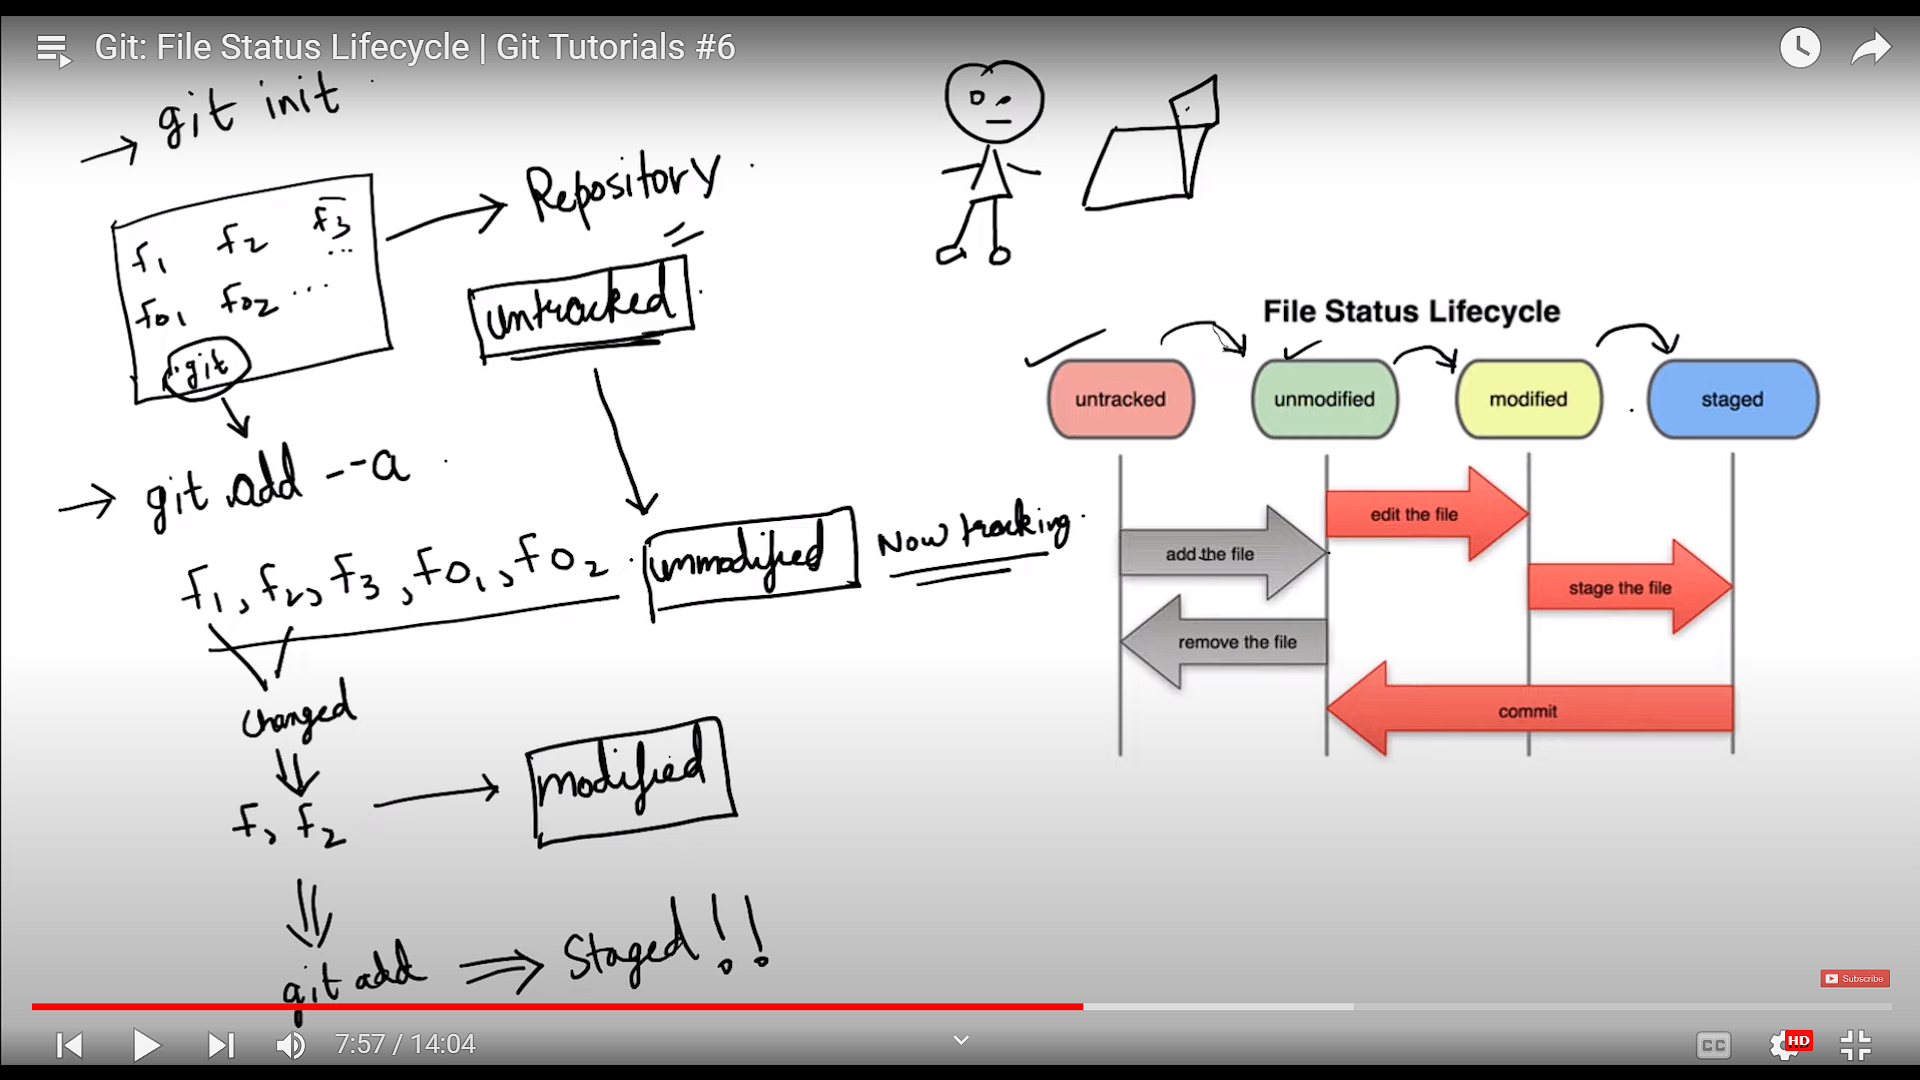 Git: File Status Lifecycle | Git Tutorials #6
→ git init
f1 f2 f3 ...
f01 f02 ...
.git
→ Repository
untracked
→ git add --a
f1, f2, f3, f01, f02
unmodified
Now tracking.
changed
f1 f2
→ modified
git add ⇒ Staged!!
File Status Lifecycle
untracked
unmodified
modified
staged
edit the file
add the file
stage the file
remove the file
commit
Subscribe
7:57 / 14:04
CC
HD